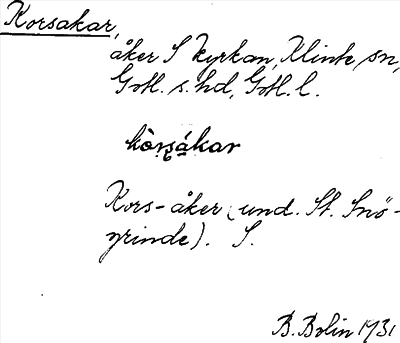 Korsakar,
åker S kyrkan, Klinte sn,
Gotl. s. hd, Gotl. l.
kòrsákar
Kors-åker (und. St. Snö-
grinde). S.
B. Bolin 1931